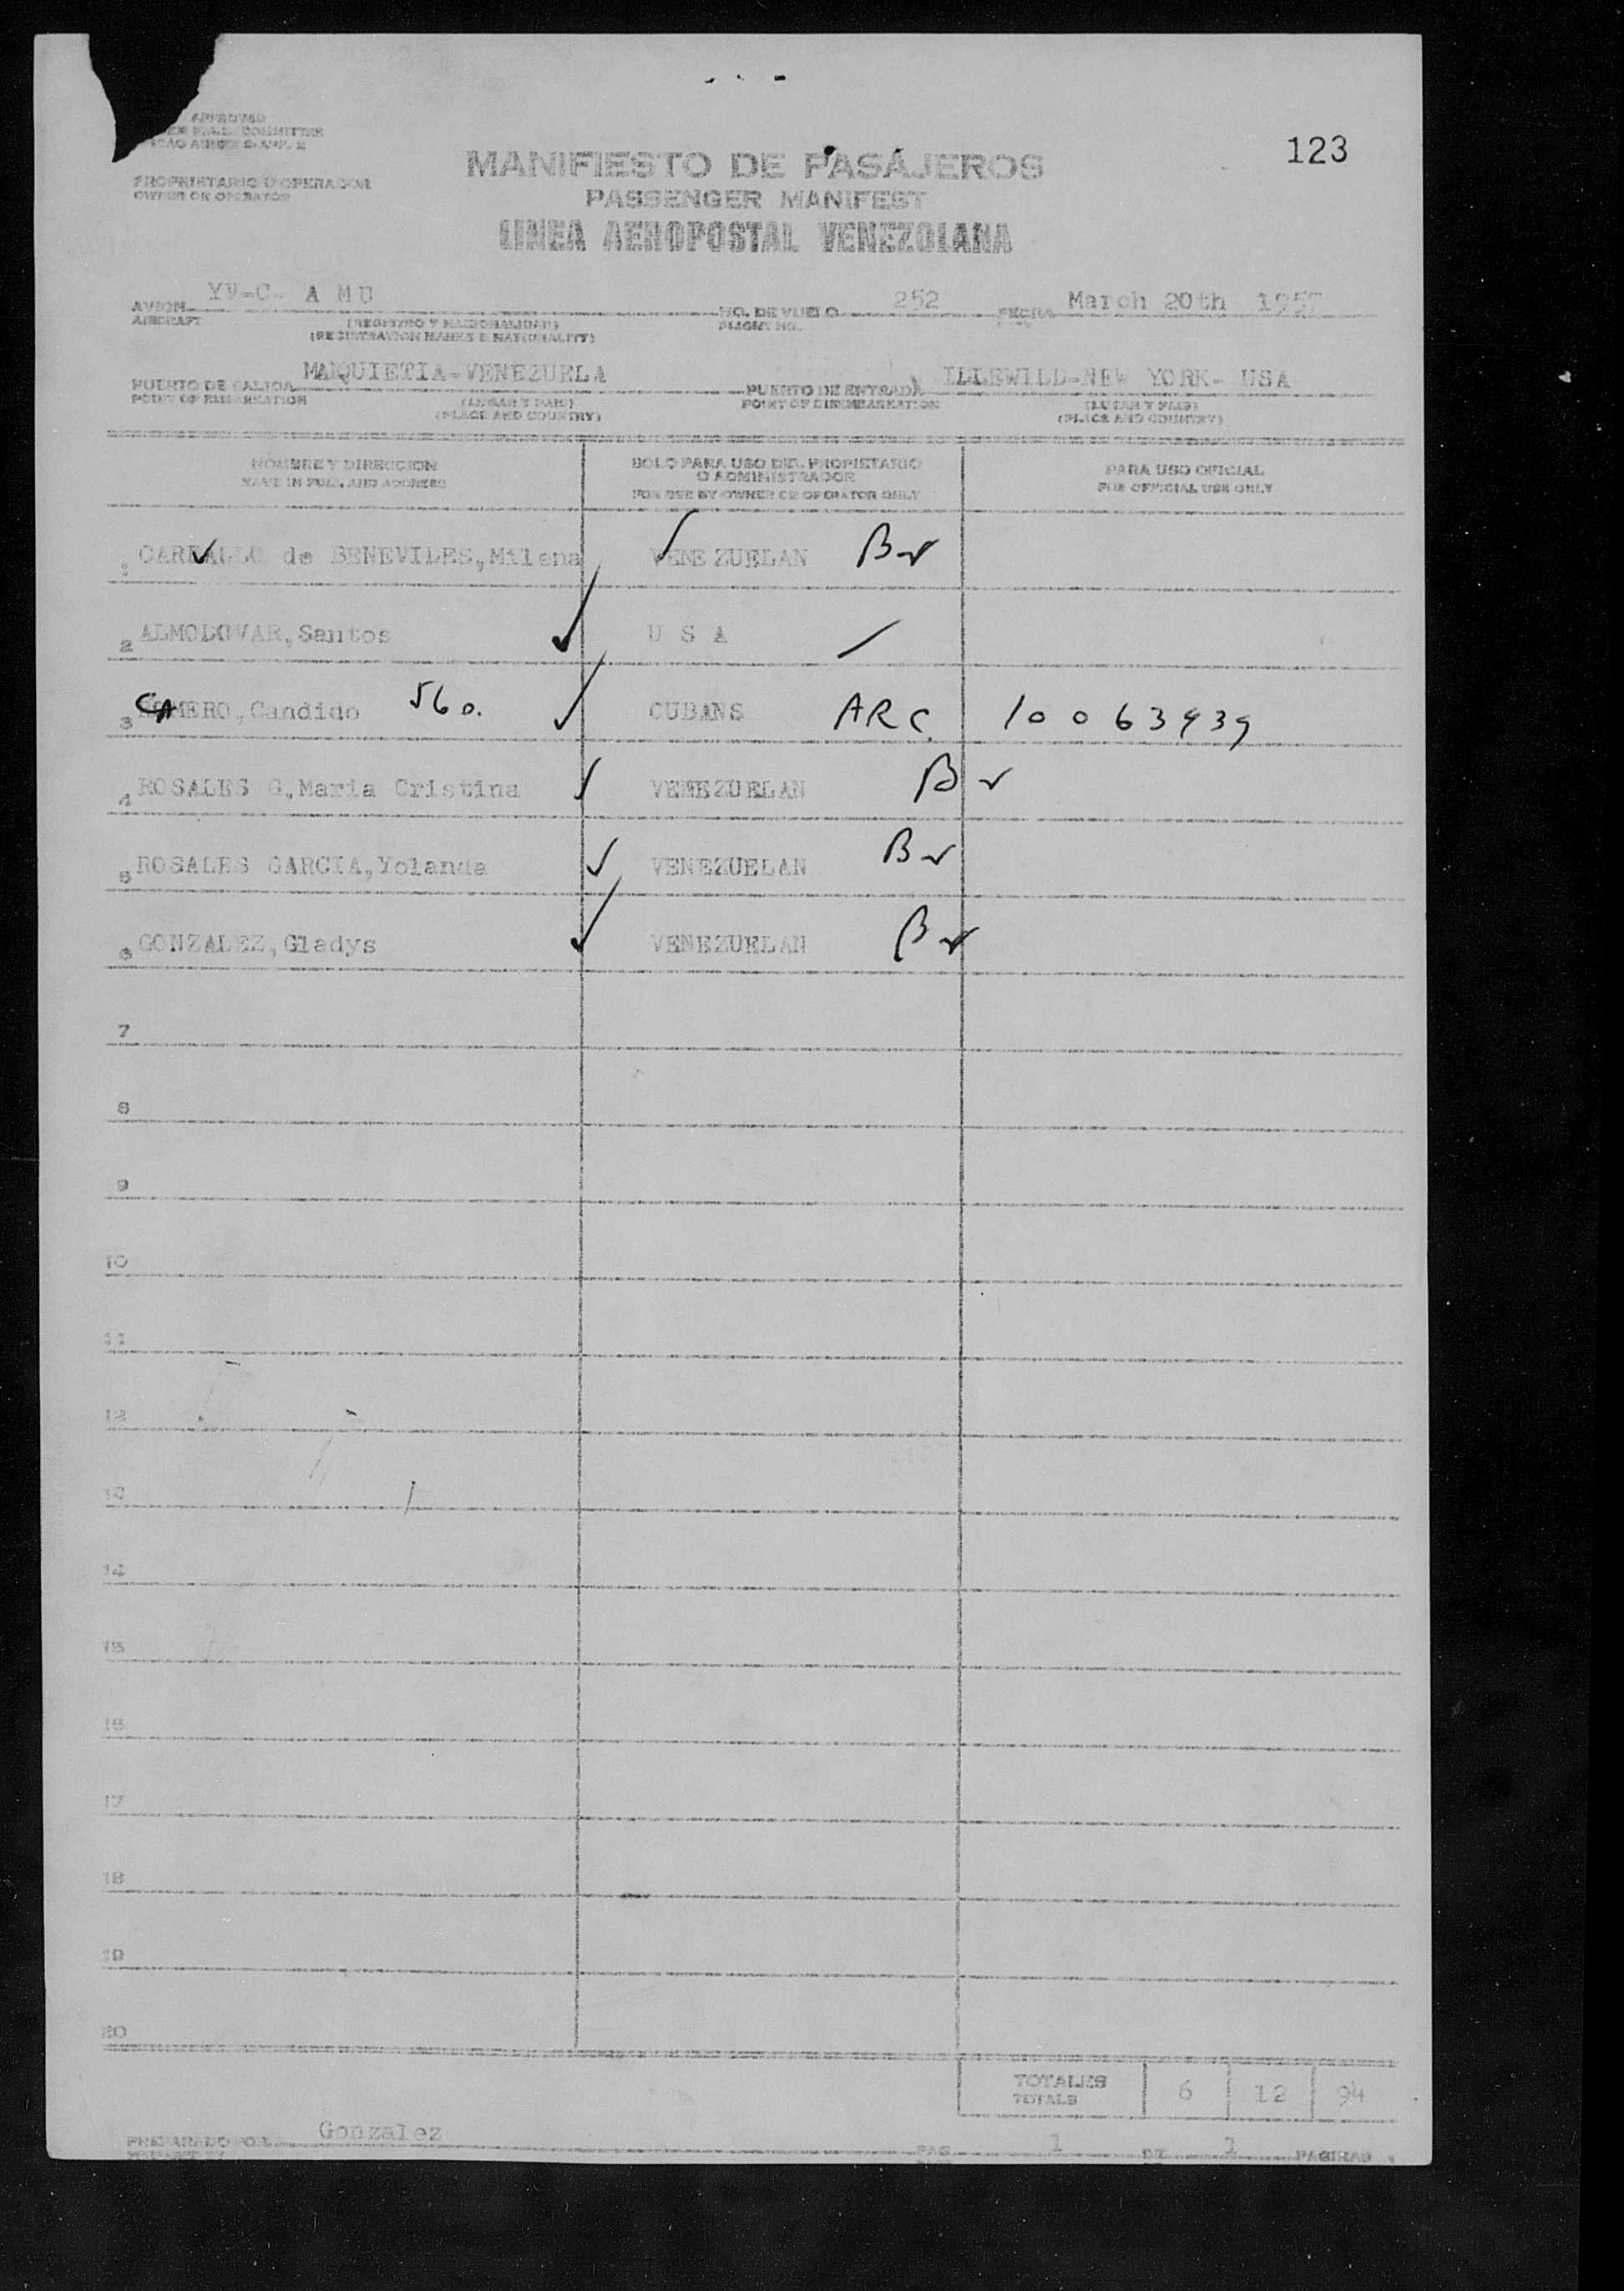 APPROVED
123
MANIFIESTO DE PASAJEROS
PROPRIETARIO O OPERADOR
OWNER OR OPERATOR
PASSENGER MANIFEST
LINEA AEROPOSTAL VENEZOLANA
AVION YV-C- A M U NO. DE VUELO 252 FECHA March 20th 1957
AIRCRAFT (REGISTRO Y NACIONALIDAD) FLIGHT NO.
(REGISTRATION MARKS & NATIONALITY)
PUERTO DE SALIDA MAIQUIETIA-VENEZUELA PUERTO DE ENTRADA IDLEWILD-NEW YORK- USA
POINT OF EMBARKATION (LUGAR Y PAIS) POINT OF DISEMBARKATION (LUGAR Y PAIS)
(PLACE AND COUNTRY) (PLACE AND COUNTRY)
NOMBRE Y DIRECCION SOLO PARA USO DEL PROPIETARIO PARA USO OFICIAL
O ADMINISTRADOR
NAME IN FULL AND ADDRESS FOR USE BY OWNER OR OPERATOR ONLY FOR OFFICIAL USE ONLY
1 CARBALLO de BENEVILES,Milena VENEZUELAN B
2 ALMODOVAR,Santos U S A
3 ROMERO,Candido 560. CUBANS ARC. 10063939
4 ROSALES G,Maria Cristina VENEZUELAN B
5 ROSALES GARCIA,Yolanda VENEZUELAN B
6 GONZALEZ,Gladys VENEZUELAN B
7
8
9
10
11
12
13
14
15
16
17
18
19
20
TOTALES 6 12 94
TOTALS
PREPARADO POR Gonzalez PAG. 1 DE 1 PAGINAS